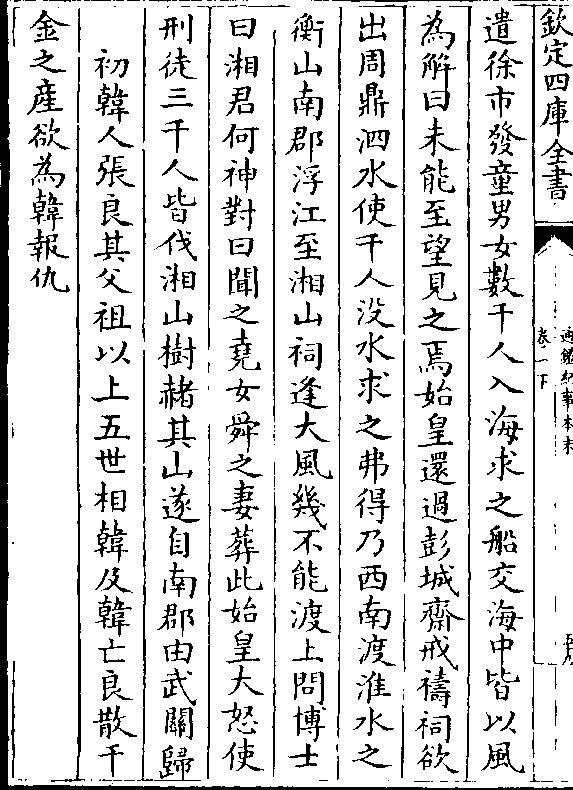 欽定四庫全書
通鑑紀事本末
卷一下
遣徐市發童男女數千人入海求之船交海中皆以風
為解曰未能至望見之焉始皇還過彭城齋戒禱祠欲
出周鼎泗水使千人没水求之弗得乃西南渡淮水之
衡山南郡浮江至湘山祠逢大風幾不能渡上問博士
曰湘君何神對曰聞之堯女舜之妻葬此始皇大怒使
刑徒三千人皆伐湘山樹赭其山遂自南郡由武關歸
初韓人張良其父祖以上五世相韓及韓亡良散千
金之産欲為韓報仇